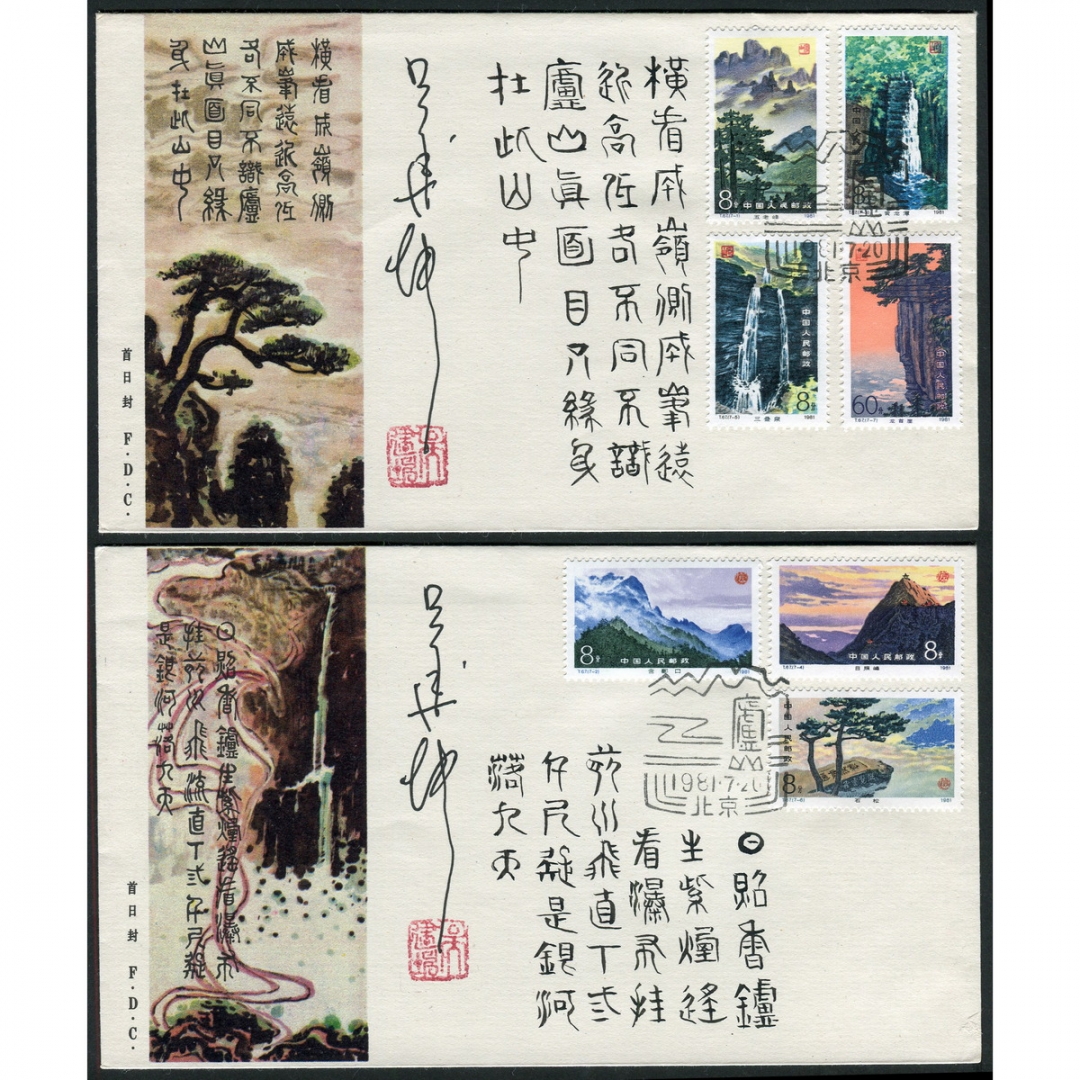 橫看成嶺側
成峯遠近高低
各不同不識廬
山眞面目只緣
身在此山中
首日封 F.D.C.
橫看成嶺側成峯遠
近高低各不同不識
廬山眞面目只緣身
在此山中
8分 中国人民邮政
T.67.(7-1) 五老峰 1981
中国
1981
中国人民邮政
8分
T.67.(7-5) 三叠泉 1981
中国人民邮政
60分
T.67.(7-7) 龙首崖 1981
廬山
1981.7.20
北京
日照香鑪生紫煙遙看瀑布
挂前川飛流直下弎千尺疑
是銀河落九天
首日封 F.D.C.
日照香鑪
生紫煙遙
看瀑布挂
前川飛直下弎
千尺疑是銀河
落九天
8分 中国人民邮政
T.67.(7-3) 含鄱口 1981
中国人民邮政 8分
T.67.(7-4) 1981
中国人民邮政
8分
T.67.(7-6) 石松 1981
廬山
1981.7.20
北京